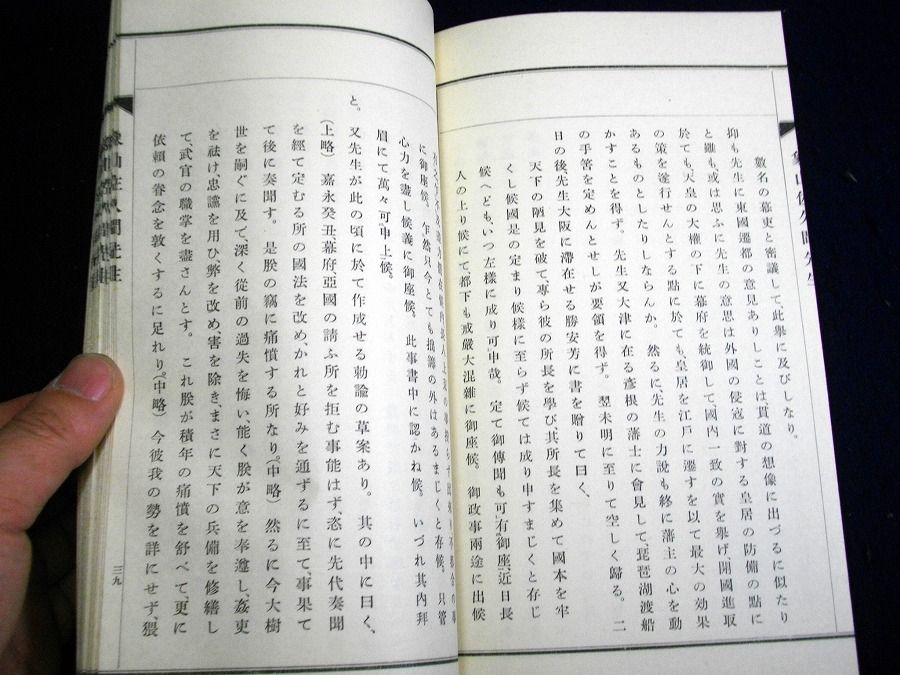 數名の幕吏と密議して、此擧に及びしなり。
抑も先生に東國遷都の意見ありしことは貫道の想像に出づるに似たり
と雖も、或は思ふに先生の意思は外國の侵寇に對する皇居の防備の點に
於ても、天皇の大權の下に幕府を統御して國內一致の實を擧げ、開國進取
の策を遂行せんとする點に於ても、皇居を江戸に遷すを以て最大の効果
あるものとしたりしならんか。然るに先生の力說も終に藩主の心を動
かすことを得ず。先生又大津に在る彥根の藩士に會見して、琵琶湖渡船
の手筈を定めんとせしが要領を得ず。翌未明に至りて空しく歸る。二
日の後、先生大阪に滯在せる勝安芳に書を贈りて曰く、
天下の陋見を破て、專ら彼の所長を學び、其所長を集めて國本を牢
くし候國是の定まり候樣に至らず候ては成り申すまじくと存じ
候へども、いつ左樣に成り可申哉。定て御傳聞も可有御座、近日長
人の上り候にて都下も戒嚴大混雜に御座候。御政事兩途に出候
に御座候。乍然只今とても拙籌の外はあるまじくと存候。只管
心力を盡し候義に御座候。此事書中に認かね候。いづれ其內拜
眉にて萬々可申上候。
と。又先生が此の頃に於て作成せる勅諭の草案あり。其の中に曰く、
(上略)嘉永癸丑幕府、亞國の請ふ所を拒む事能はず、恣に先代奏聞
を經て定むる所の國法を改め、かれと好みを通ずるに至て、事果て
て後に奏聞す。是朕の竊に痛憤する所なり。(中略)然るに今大樹
世を嗣ぐに及て、深く從前の過失を悔い能く朕が意を奉遵し、姦吏
を祛け、忠讜を用ひ弊を改め、害を除きまさに天下の兵備を修繕し
て、武官の職掌を盡さんとす。これ朕が積年の痛憤を舒べて、更に
依頼の眷念を敦くするに足れり。(中略)今彼我の勢を詳にせず、猥
三九